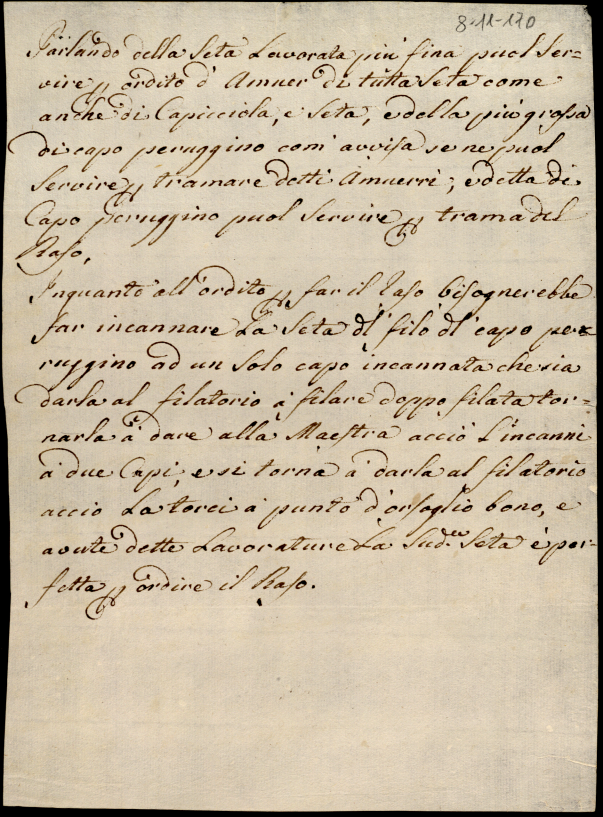 8-11-170
Parlando della Seta Lavorata più fina puol Ser=
vire p ordito d'Amuer di tutta Seta come
anche di Capicciola, e Seta, e della più grossa
di capo peruggino com'avvisa se ne puol
Servire p tramare detti Amuerri; e detta di
Capo peruggino puol Servire p trama del
Raso,
Inquanto all'ordito p far il Raso bisognerebbe
far incannare La Seta dl' filo dl' capo pe=
ruggino ad un Solo capo incannata che sia
darla al filatorio à filare doppo filata tor=
narla à dare alla Maestra acciò L'incanni
à due Capi, e si torna à darla al filatorio
acciò La torci à punto d'orsoglio bono, e
avute dette Lavorature La Sud.ta Seta è per=
fetta p ordire il Raso.